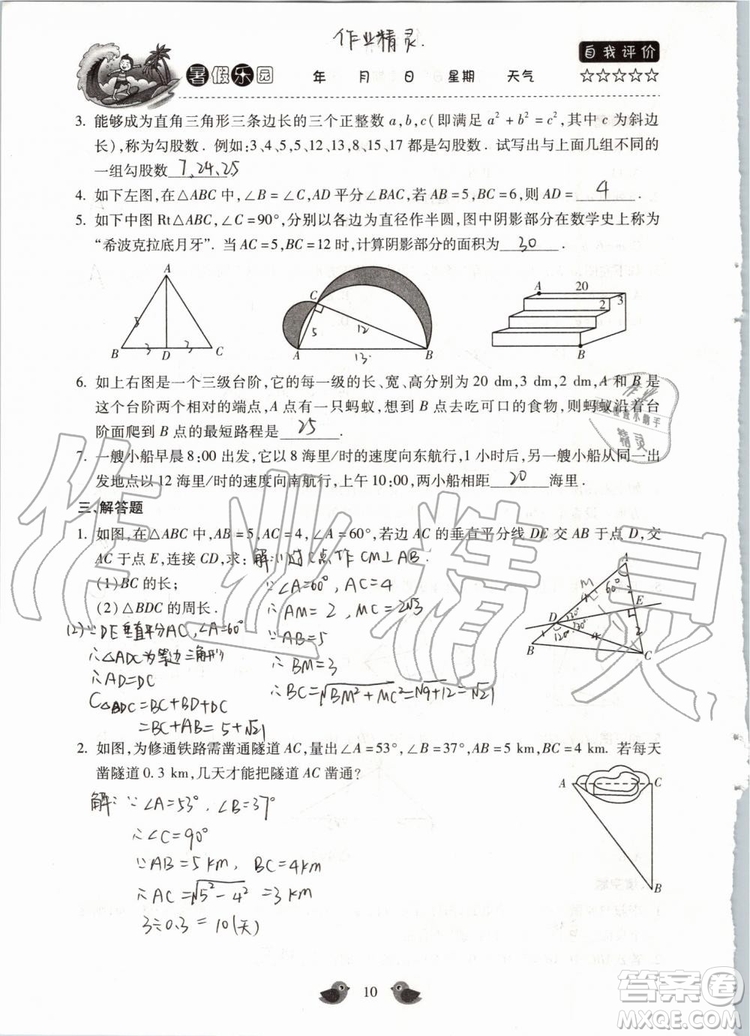 作业精灵.
自我评价
暑假乐园 年 月 日 星期 天气 ☆☆☆☆☆
3. 能够成为直角三角形三条边长的三个正整数 a,b,c(即满足 a²+b²=c²,其中 c 为斜边
长),称为勾股数. 例如:3、4、5,5、12、13,8、15、17 都是勾股数. 试写出与上面几组不同的
一组勾股数 7,24,25
4. 如下左图,在△ABC 中,∠B=∠C,AD 平分∠BAC,若 AB=5,BC=6,则 AD= 4 .
5. 如下中图 Rt△ABC,∠C=90°,分别以各边为直径作半圆,图中阴影部分在数学史上称为
“希波克拉底月牙”. 当 AC=5,BC=12 时,计算阴影部分的面积为 30 .
A 5 B 3 D 3 C
C 5 12 A 13 B
A 20 2 3 B
6. 如上右图是一个三级台阶,它的每一级的长、宽、高分别为 20 dm,3 dm,2 dm,A 和 B 是
这个台阶两个相对的端点,A 点有一只蚂蚁,想到 B 点去吃可口的食物,则蚂蚁沿着台
阶面爬到 B 点的最短路程是 25 .
7. 一艘小船早晨 8:00 出发,它以 8 海里/时的速度向东航行,1 小时后,另一艘小船从同一出
发地点以 12 海里/时的速度向南航行,上午 10:00,两小船相距 20 海里.
三、解答题
1. 如图,在△ABC 中,∠A=60°,AB=5,AC=4,若边 AC 的垂直平分线 DE 交 AB 于点 D,交
AC 于点 E,连接 CD,求: 解:(1)过C点作CM⊥AB.
(1)BC 的长; ∵∠A=60°, AC=4
(2)△BDC 的周长. ∴AM=2, MC=2√3
(2)∵DE垂直平分AC,∠A=60° ∵AB=5
∴△ADC为等边三角形 ∴BM=3
∴AD=DC ∴BC=√BM²+MC²=√9+12=√21
C△BDC=BC+BD+DC
=BC+AB=5+√21
M 60° D E 120° B C
2. 如图,为修通铁路需凿通隧道 AC,量出∠A=53°,∠B=37°,AB=5 km,BC=4 km. 若每天
凿隧道 0.3 km,几天才能把隧道 AC 凿通?
解:∵∠A=53°,∠B=37°
∴∠C=90°
∵AB=5km, BC=4km
∴AC=√5²-4²=3km
3÷0.3=10(天)
A C B
10
作业精灵
精灵
答案圈
MXQE.COM